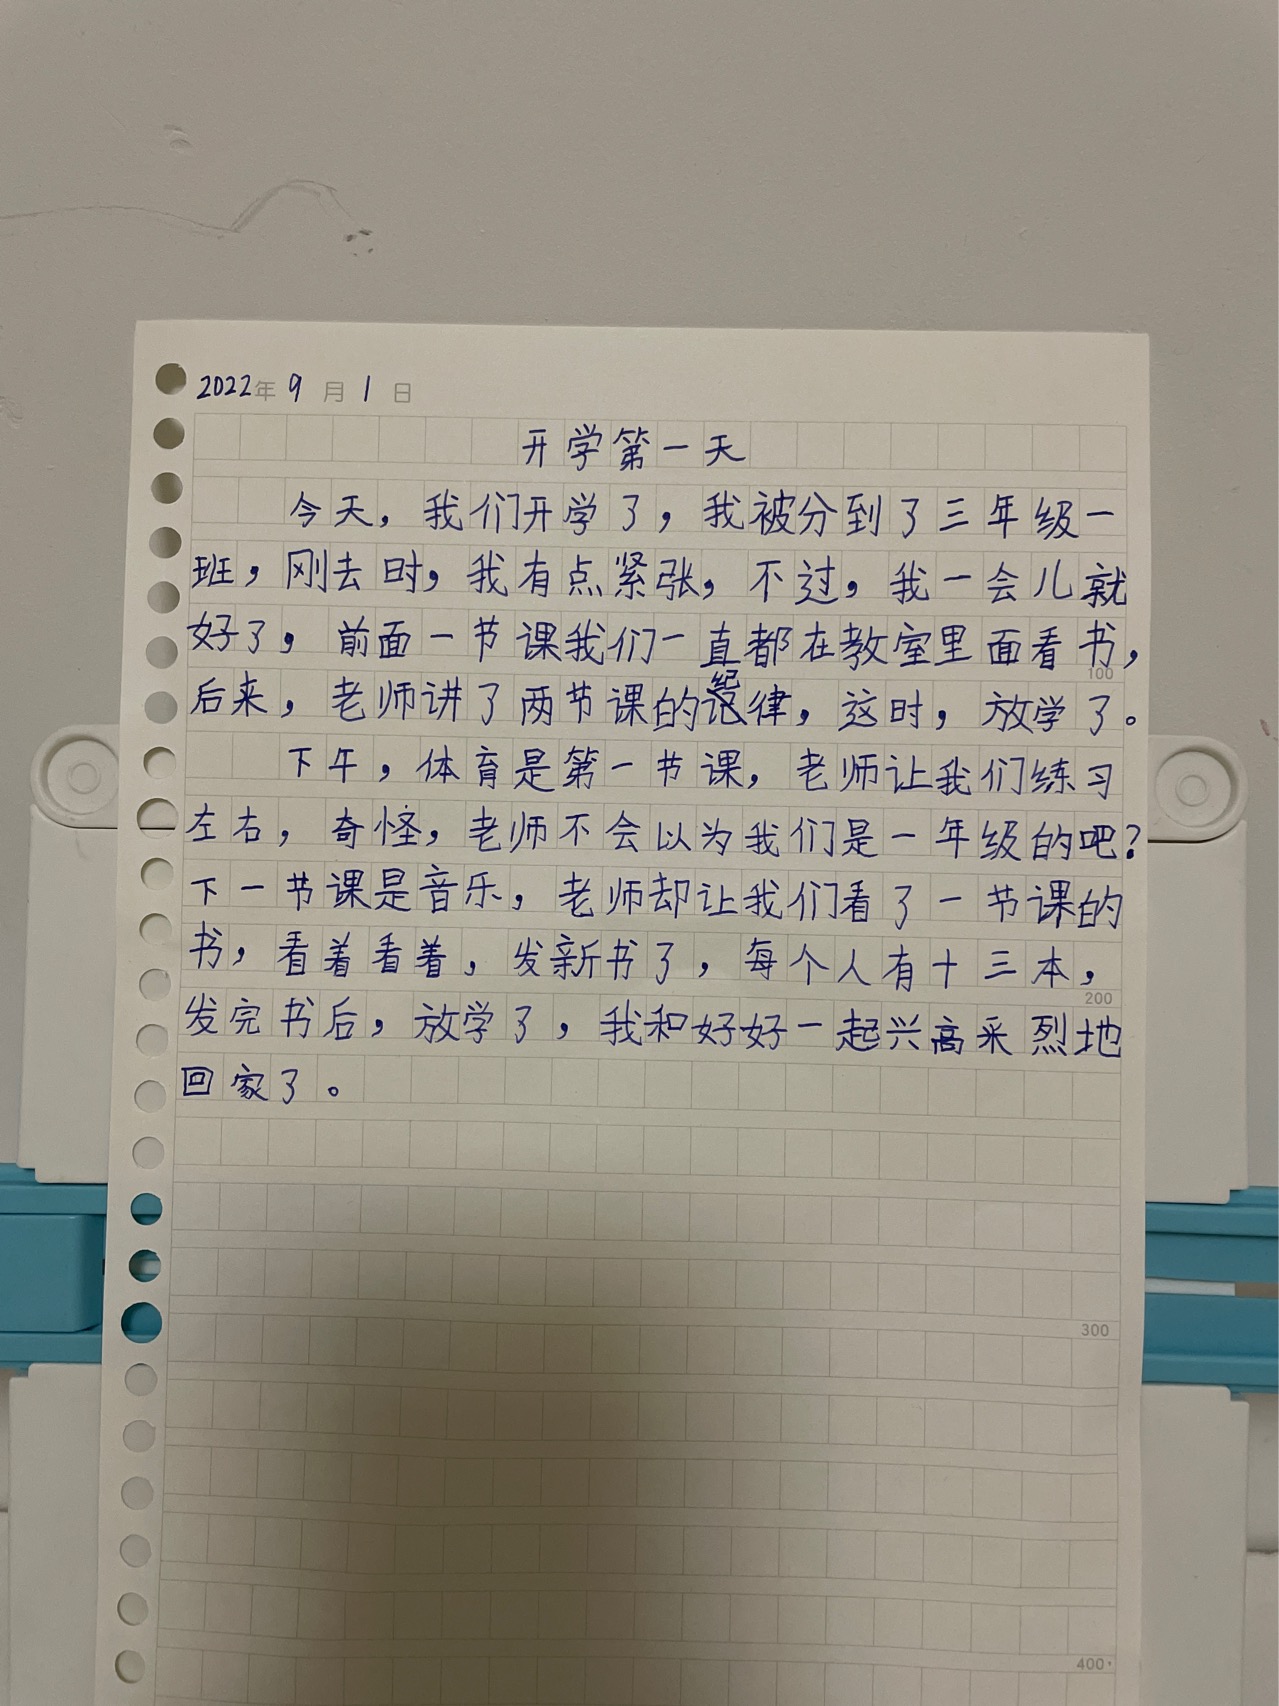 2022年 9 月 1 日
开学第一天
今天，我们开学了，我被分到了三年级一
班，刚去时，我有点紧张，不过，我一会儿就
好了，前面一节课我们一直都在教室里面看书，
100
后来，老师讲了两节课的纪律，这时，放学了。
下午，体育是第一节课，老师让我们练习
左右，奇怪，老师不会以为我们是一年级的吧？
下一节课是音乐，老师却让我们看了一节课的
书，看着看着，发新书了，每个人有十三本，
200
发完书后，放学了，我和好好一起兴高采烈地
回家了。
300
400